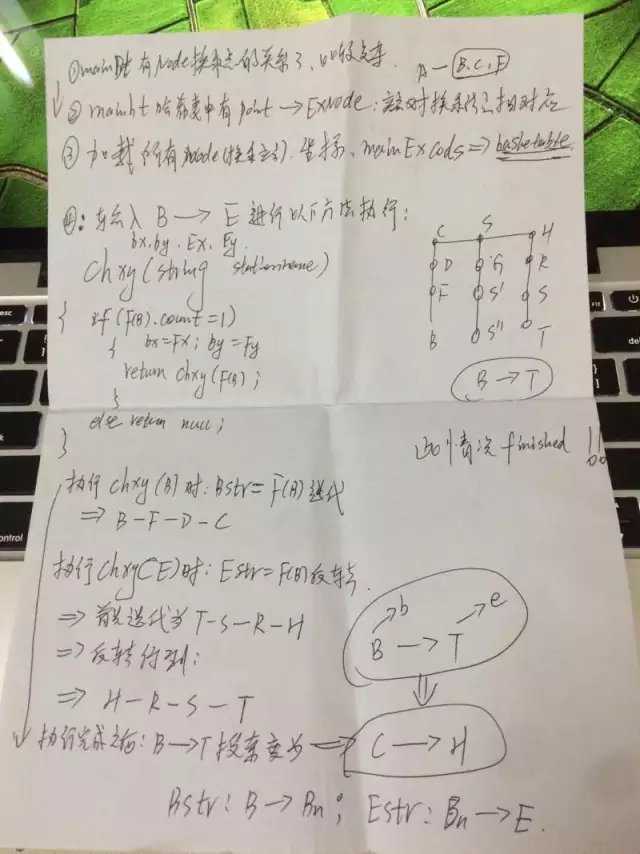 ① main 有 Node 换乘点的关系了、
A — B.C.F
② mainht 哈希表中有 point → ExNode:
③ 加载所有 Node(换乘点)坐标、mainExCods => hashtable
④: 输入 B → E 进行以下方法执行:
bx.by. Ex. Ey.
Chxy(string stationname)
{ if (F(B).count=1)
{ bx=Fx; by=Fy
return chxy(F(B);
}
else return null;
}
C S H
D G R
F S' S
B S'' T
B → T
finished !!
执行 chxy(B)时: Bstr= F(B)迭代
=> B-F-D-C
执行 Chxy(E)时: Estr=F(B)反转
=> 首先迭代为 T-S-R-H
=> 反转得到:
=> H-R-S-T
b e
B → T
执行完成之后: B→T 搜索变为 => C → H
Bstr: B → Bn; Estr: Bn → E.
esc
control
del